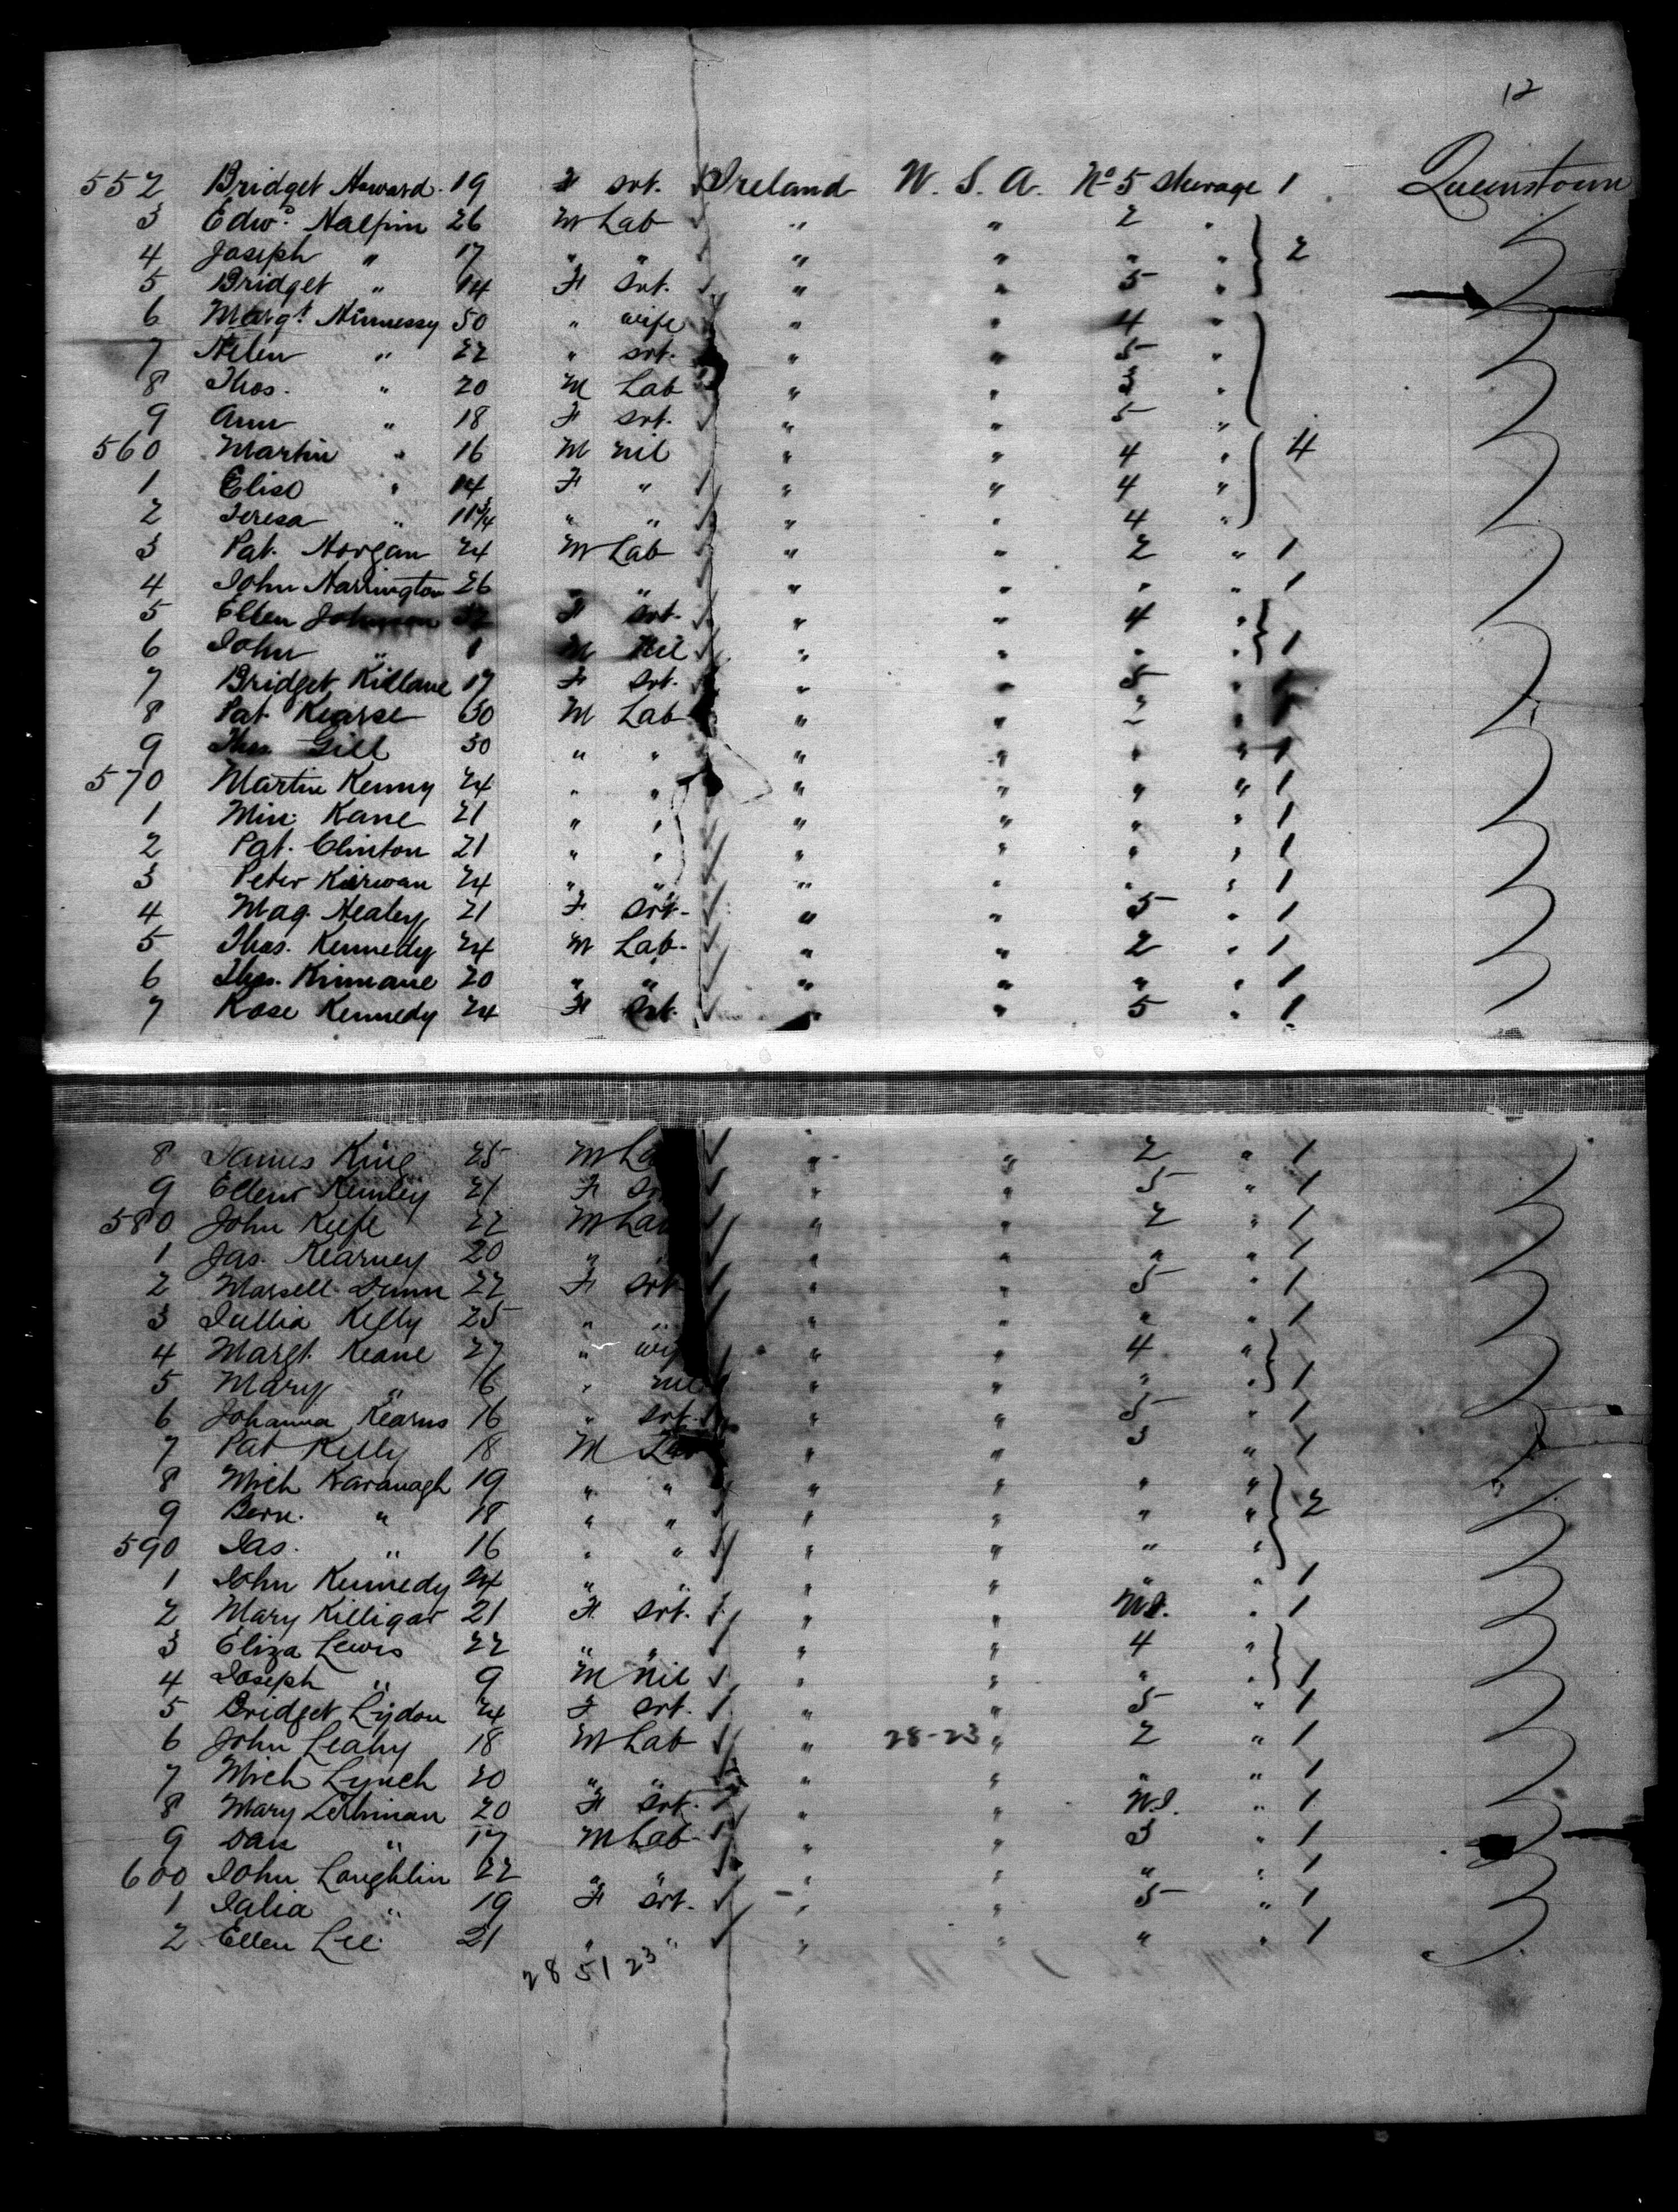 12
552 Bridget Howard 19 F svt. Ireland U. S. A. No 5 steerage 1 Queenstown
3 Edwd. Halpin 26 M Lab " " 2 "
4 Joseph " 17 " " " " " " 2
5 Bridget " 14 F svt. " " 5 "
6 Margt. Hinnessy 50 " wife " " 4 "
7 Helen " 22 " svt. " " 5 "
8 Thos. " 20 M Lab " " 3 "
9 Ann " 18 F svt. " " 5 "
560 Martin " 16 M nil " " 4 " 4
1 Elisa " 14 F " " " 4 "
2 Teresa " 11 3/4 " " " " 4 "
3 Pat. Horgan 24 M Lab " " 2 " 1
4 John Harrington 26 " " " " " " 1
5 Ellen Johnson F svt. " " 4 "
6 John " 1 M Nil " " " " 1
7 Bridget Killane 17 F svt. " " 5 "
8 Pat Kearse 30 M Lab " " 2 "
9 Thos. Gill 30 " " " " " " 1
570 Martin Kenny 24 " " " " " " 1
1 Min. Kane 21 " " " " " " 1
2 Pat. Clinton 21 " " " " " " 1
3 Peter Kirwan 24 " " " " " " 1
4 Mag. Healey 21 F svt. " " 5 " 1
5 Thos. Kennedy 24 M Lab. " " 2 " 1
6 Thos. Kinnane 20 " " " " " " 1
7 Rose Kennedy 24 F svt. " 5 " 1
8 James King 25 M La " " 2 " 1
9 Ellen Kenley 21 F " " 5 " 1
580 John Keefe 22 M Lab " " 2 " 1
1 Jas. Kearney 20 " " " " " 1
2 Marsell Dunn 22 F svt " " 5 " 1
3 Jullia Kelly 25 " " " " " " 1
4 Margt. Keane 27 " wif " " 4 "
5 Mary " 16 " nil " " " " 1
6 Johanna Kearns 16 " svt. " " 5 " 1
7 Pat Kelly 18 M Lab " " 3 " 1
8 Mich Kavanagh 19 " " " " " "
9 Bern. " 18 " " " " " " 2
590 Jas. " 16 " " " " " "
1 John Kennedy 24 " " " " " " 1
2 Mary Killigar 21 F svt. " " " 1
3 Eliza Lewis 22 " " " " 4 "
4 Joseph " 9 M nil " " " " 1
5 Bridget Lydon 24 F svt. " " 5 " 1
6 John Leahy 18 M Lab " 28-23 " 2 " 1
7 Mich Lynch 20 " " " " " " 1
8 Mary 20 F svt. " " " 1
9 Dan " 17 M Lab " " 3 " 1
600 John Loughlin 22 " " " " " " 1
1 Julia " 19 F svt. " " 5 " 1
2 Ellen Lee 21 " " " " " " 1
28 51 23